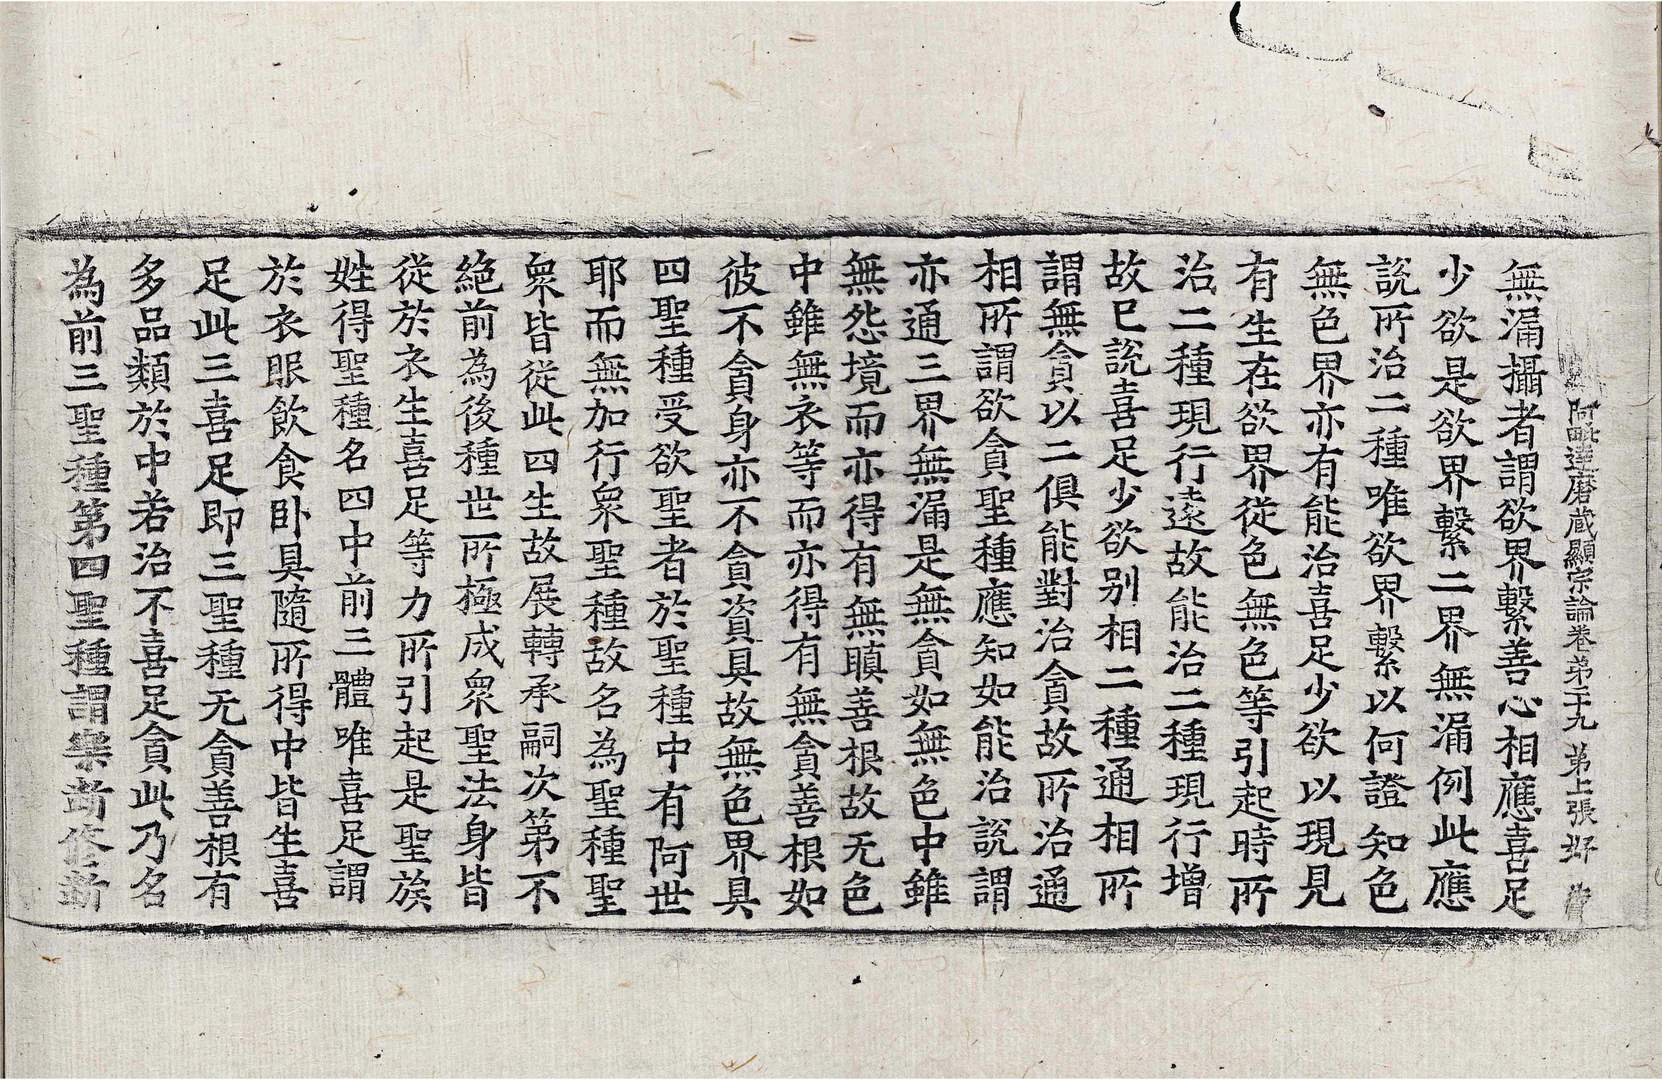 阿毗達磨蔵顯宗論卷第二十九 第七張
無漏攝者謂欲界繫善心相應喜足
少欲是欲界繫二界無漏例此應
說所治二種唯欲界繫以何證知色
無色界亦有能治喜足少欲以現見
有生在欲界從色無色等引起時所
治二種現行遠故能治二種現行增
故已說喜足少欲别相二種通相所
謂無貪以二俱能對治貪故所治通
相所謂欲貪聖種應知如能治說謂
亦通三界無漏是無貪如無色中雖
無怨境而亦得有無瞋善根故无色
中雖無衣等而亦得有無貪善根如
彼不貪身亦不貪資具故無色界具
四聖種受欲聖者於聖種中有阿世
耶而無加行衆聖種故名為聖種聖
衆皆從此四生故展轉承嗣次第不
絕前為後種世所極成衆聖法身皆
從於衣生喜足等力所引起是聖族
姓得聖種名四中前三體唯喜足謂
於衣服飲食卧具隨所得中皆生喜
足此三喜足即三聖種无貪善根有
多品類於中若治不喜足貪此乃名
為前三聖種第四聖種謂樂斷修斷